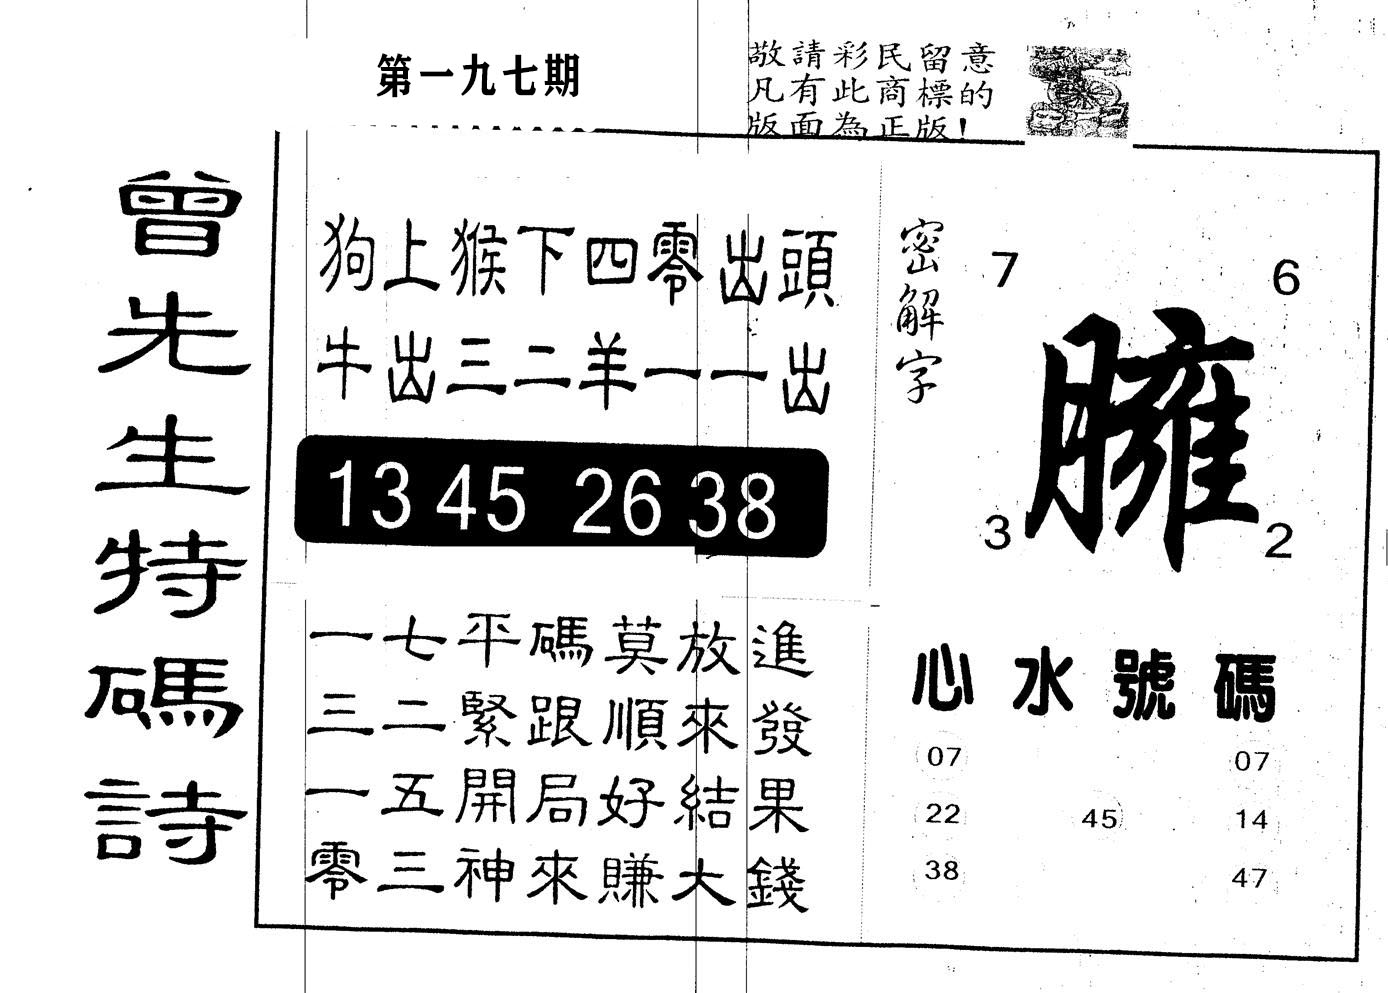 第一九七期
敬請彩民留意
凡有此商標的
版面為正版!
曾先生特碼詩
狗上猴下四零出頭
牛出三二羊一一出
13 45 26 38
密解字
7 6
臃
3 2
一七平碼莫放進
三二緊跟順來發
一五開局好結果
零三神來賺大錢
心水號碼
07 07
22 45 14
38 47